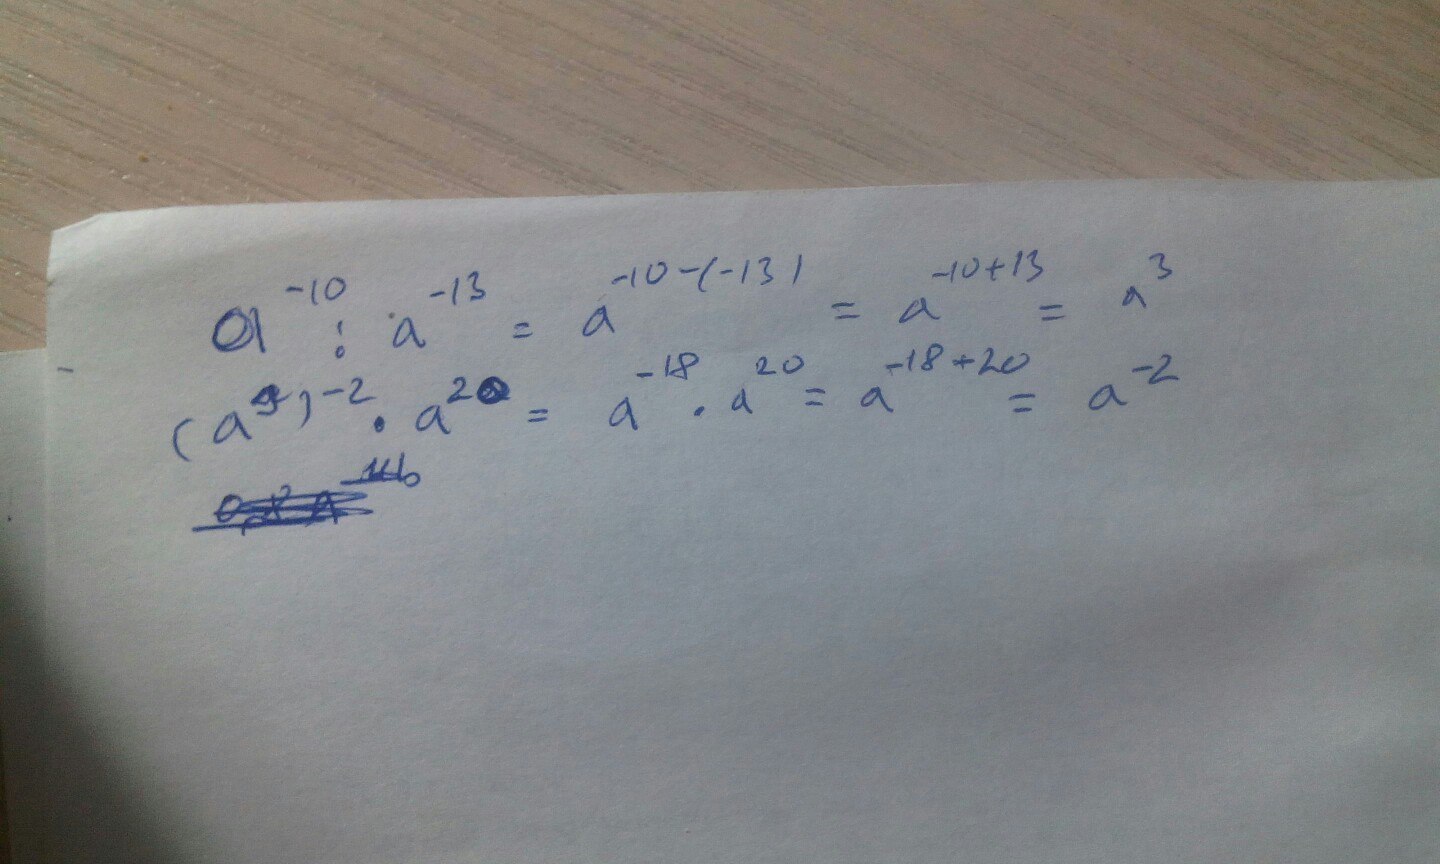 a^{-10} : a^{-13} = a^{-10-(-13)} = a^{-10+13} = a^3
(a^9)^{-2} · a^{20} = a^{-18} · a^{20} = a^{-18+20} = a^{-2}